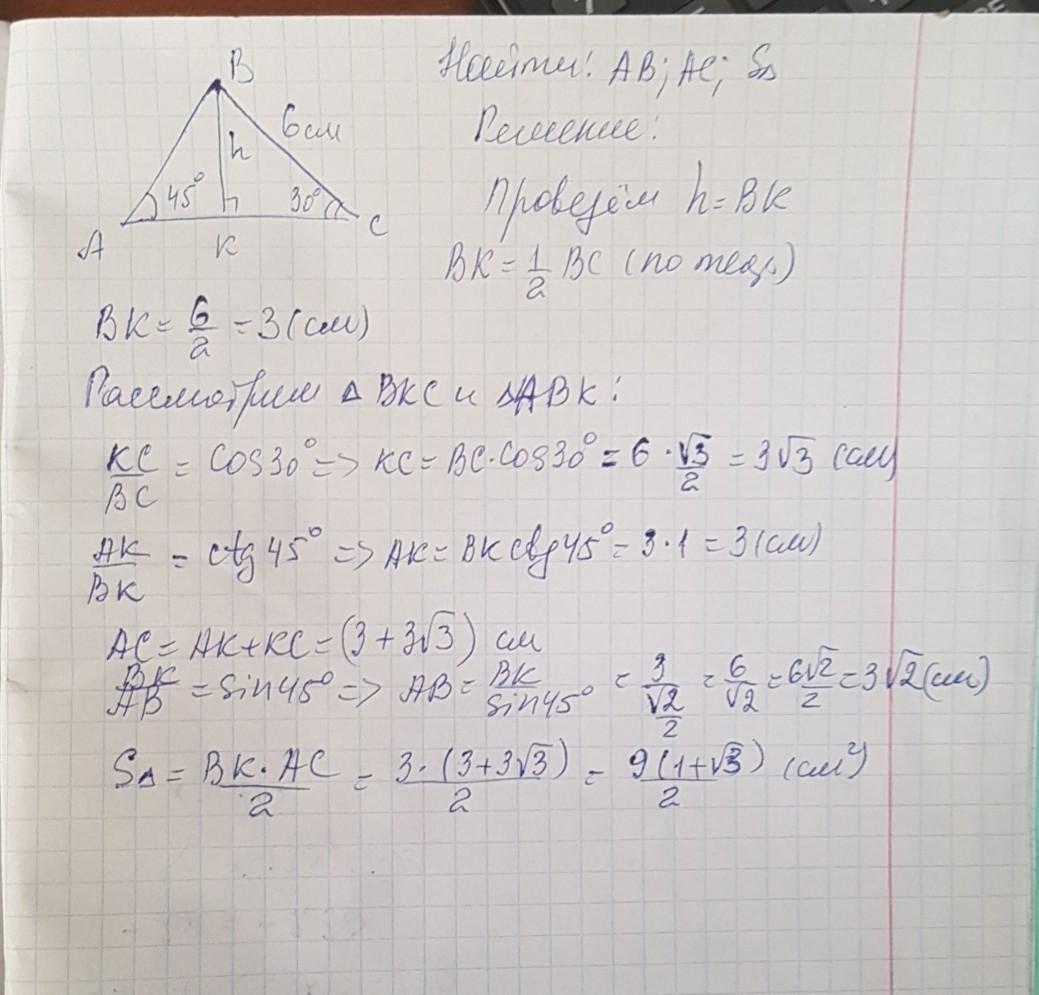 B
Найти: AB; AC; S∆
6см
Решение:
h
45°
30°
Проведём h=BK
A
K
C
BK = 1/2 BC (по теор.)
BK = 6/2 = 3 (см)
Рассмотрим ∆ BKC и ∆ABK:
KC/BC = cos30° => KC = BC·cos30° = 6 · √3/2 = 3√3 (см)
AK/BK = ctg 45° => AK = BK ctg45° = 3·1 = 3 (см)
AC = AK+KC = (3+3√3) см
BK/AB = sin45° => AB = BK/sin45° = 3/(√2/2) = 6/√2 = 6√2/2 = 3√2 (см)
S∆ = BK·AC/2 = 3·(3+3√3)/2 = 9(1+√3)/2 (см²)